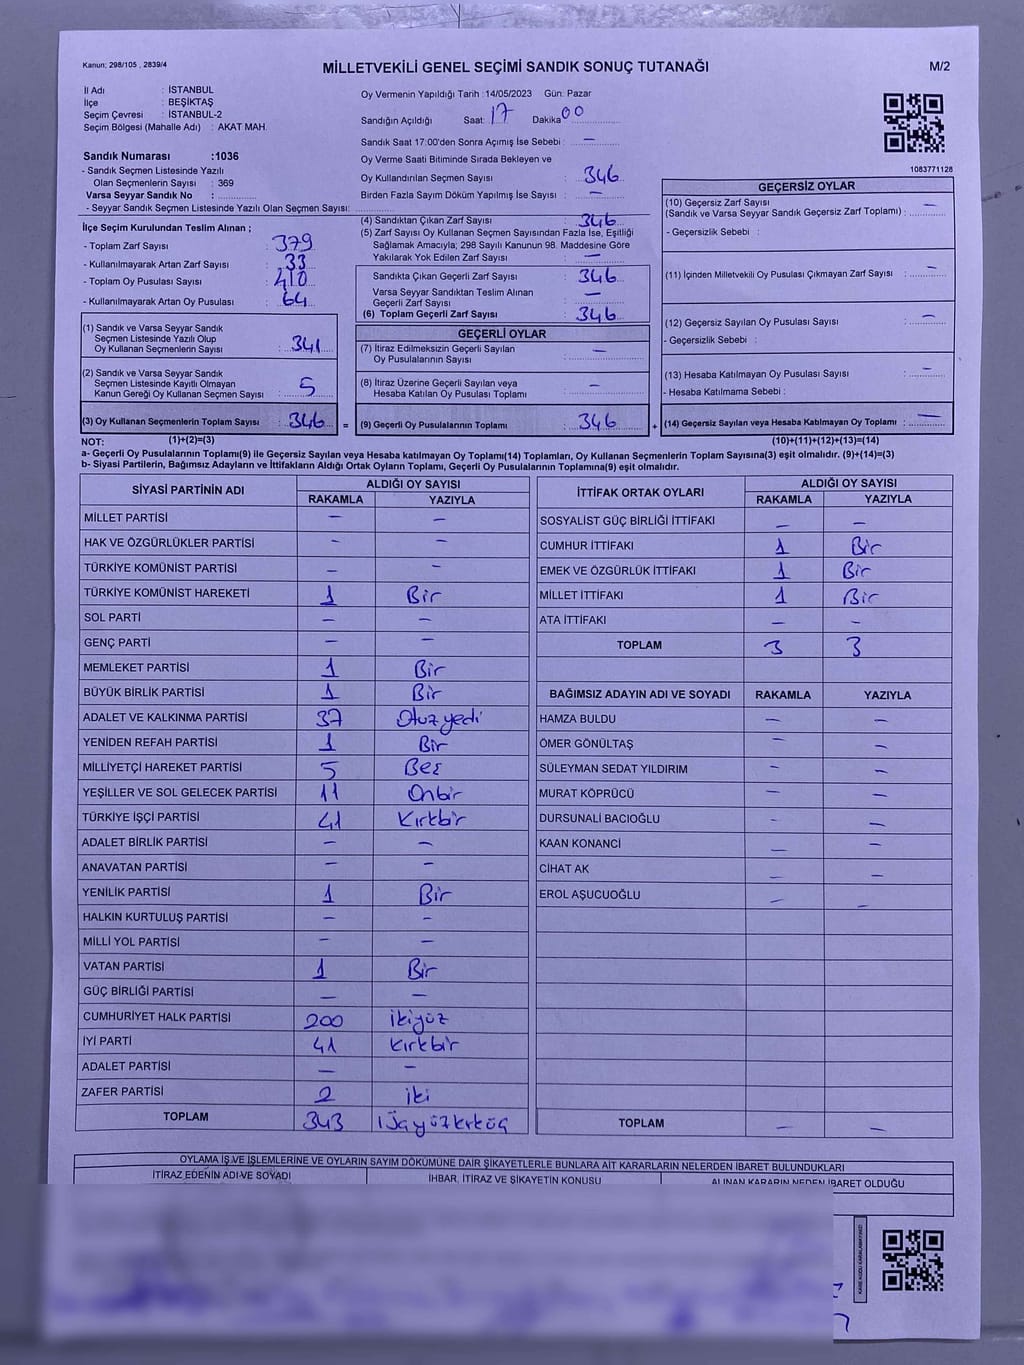 Kanun: 298/105 , 2839/4
MİLLETVEKİLİ GENEL SEÇİMİ SANDIK SONUÇ TUTANAĞI
M/2
İl Adı : İSTANBUL
İlçe : BEŞİKTAŞ
Seçim Çevresi : İSTANBUL-2
Seçim Bölgesi (Mahalle Adı) : AKAT MAH.
Sandık Numarası :1036
- Sandık Seçmen Listesinde Yazılı
Olan Seçmenlerin Sayısı : 369
Varsa Seyyar Sandık No :
- Seyyar Sandık Seçmen Listesinde Yazılı Olan Seçmen Sayısı:
İlçe Seçim Kurulundan Teslim Alınan ;
- Toplam Zarf Sayısı : 379
- Kullanılmayarak Artan Zarf Sayısı : 33
- Toplam Oy Pusulası Sayısı : 410
- Kullanılmayarak Artan Oy Pusulası : 64
(1) Sandık ve Varsa Seyyar Sandık
Seçmen Listesinde Yazılı Olup
Oy Kullanan Seçmenlerin Sayısı : 341
(2) Sandık ve Varsa Seyyar Sandık
Seçmen Listesinde Kayıtlı Olmayan
Kanun Gereği Oy Kullanan Seçmen Sayısı : 5
(3) Oy Kullanan Seçmenlerin Toplam Sayısı : 346 =
Oy Vermenin Yapıldığı Tarih :14/05/2023 Gün: Pazar
Sandığın Açıldığı Saat: 17 Dakika 00
Sandık Saat 17:00'den Sonra Açımış İse Sebebi : —
Oy Verme Saati Bitiminde Sırada Bekleyen ve
Oy Kullandırılan Seçmen Sayısı : 346
Birden Fazla Sayım Döküm Yapılmış İse Sayısı : —
(4) Sandıktan Çıkan Zarf Sayısı : 346
(5) Zarf Sayısı Oy Kullanan Seçmen Sayısından Fazla İse, Eşitliği
Sağlamak Amacıyla; 298 Sayılı Kanunun 98. Maddesine Göre
Yakılarak Yok Edilen Zarf Sayısı : —
Sandıkta Çıkan Geçerli Zarf Sayısı : 346
Varsa Seyyar Sandıktan Teslim Alınan
Geçerli Zarf Sayısı : —
(6) Toplam Geçerli Zarf Sayısı : 346
GEÇERLİ OYLAR
(7) İtiraz Edilmeksizin Geçerli Sayılan
Oy Pusulalarının Sayısı : —
(8) İtiraz Üzerine Geçerli Sayılan veya
Hesaba Katılan Oy Pusulaları Toplamı : —
(9) Geçerli Oy Pusulalarının Toplamı : 346 +
1083771128
GEÇERSİZ OYLAR
(10) Geçersiz Zarf Sayısı
(Sandık ve Varsa Seyyar Sandık Geçersiz Zarf Toplamı) : —
- Geçersizlik Sebebi :
(11) İçinden Milletvekili Oy Pusulası Çıkmayan Zarf Sayısı : —
(12) Geçersiz Sayılan Oy Pusulası Sayısı : —
- Geçersizlik Sebebi :
(13) Hesaba Katılmayan Oy Pusulası Sayısı : —
- Hesaba Katılmama Sebebi :
(14) Geçersiz Sayılan veya Hesaba Katılmayan Oy Toplamı : —
NOT: (1)+(2)=(3) (10)+(11)+(12)+(13)=(14)
a- Geçerli Oy Pusulalarının Toplamı(9) ile Geçersiz Sayılan veya Hesaba katılmayan Oy Toplamı(14) Toplamları, Oy Kullanan Seçmenlerin Toplam Sayısına(3) eşit olmalıdır. (9)+(14)=(3)
b- Siyasi Partilerin, Bağımsız Adayların ve İttifakların Aldığı Ortak Oyların Toplamı, Geçerli Oy Pusulalarının Toplamına(9) eşit olmalıdır.
SİYASİ PARTİNİN ADI ALDIĞI OY SAYISI
RAKAMLA YAZIYLA
MİLLET PARTİSİ — —
HAK VE ÖZGÜRLÜKLER PARTİSİ — —
TÜRKİYE KOMÜNİST PARTİSİ — —
TÜRKİYE KOMÜNİST HAREKETİ 1 Bir
SOL PARTİ — —
GENÇ PARTİ — —
MEMLEKET PARTİSİ 1 Bir
BÜYÜK BİRLİK PARTİSİ 1 Bir
ADALET VE KALKINMA PARTİSİ 37 Otuz yedi
YENİDEN REFAH PARTİSİ 1 Bir
MİLLİYETÇİ HAREKET PARTİSİ 5 Beş
YEŞİLLER VE SOL GELECEK PARTİSİ 11 Onbir
TÜRKİYE İŞÇİ PARTİSİ 41 Kırkbir
ADALET BİRLİK PARTİSİ — —
ANAVATAN PARTİSİ — —
YENİLİK PARTİSİ 1 Bir
HALKIN KURTULUŞ PARTİSİ — —
MİLLİ YOL PARTİSİ — —
VATAN PARTİSİ 1 Bir
GÜÇ BİRLİĞİ PARTİSİ — —
CUMHURİYET HALK PARTİSİ 200 ikiyüz
İYİ PARTİ 41 kırkbir
ADALET PARTİSİ — —
ZAFER PARTİSİ 2 iki
TOPLAM 343 Üçyüzkırküç
İTTİFAK ORTAK OYLARI ALDIĞI OY SAYISI
RAKAMLA YAZIYLA
SOSYALİST GÜÇ BİRLİĞİ İTTİFAKI — —
CUMHUR İTTİFAKI 1 Bir
EMEK VE ÖZGÜRLÜK İTTİFAKI 1 Bir
MİLLET İTTİFAKI 1 Bir
ATA İTTİFAKI — —
TOPLAM 3 3
BAĞIMSIZ ADAYIN ADI VE SOYADI RAKAMLA YAZIYLA
HAMZA BULDU — —
ÖMER GÖNÜLTAŞ — —
SÜLEYMAN SEDAT YILDIRIM — —
MURAT KÖPRÜCÜ — —
DURSUNALİ BACIOĞLU — —
KAAN KONANCİ — —
CİHAT AK — —
EROL AŞUCUOĞLU — —
TOPLAM — —
OYLAMA İŞ VE İŞLEMLERİNE VE OYLARIN SAYIM DÖKÜMÜNE DAİR ŞİKAYETLERLE BUNLARA AİT KARARLARIN NELERDEN İBARET BULUNDUKLARI
İTİRAZ EDENİN ADI-VE SOYADI İHBAR, İTİRAZ VE ŞİKAYETİN KONUSU ALINAN KARARIN NEDEN İBARET OLDUĞU